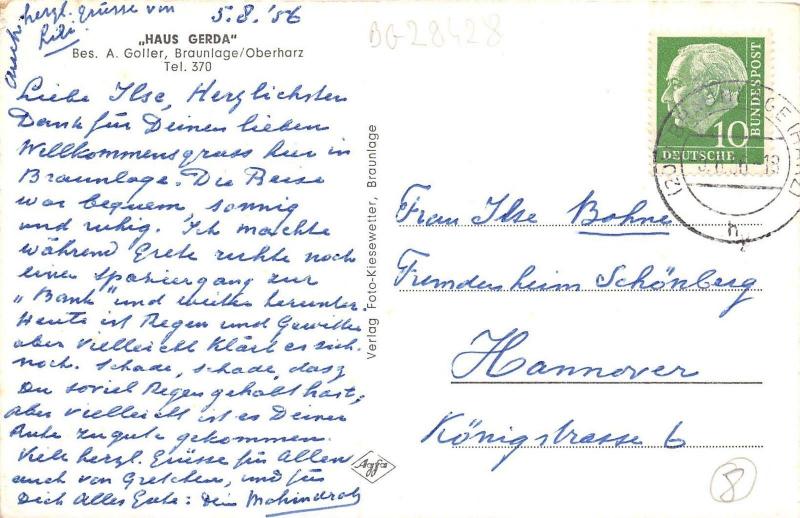 auch herzl. Grüsse von
Lili
5.8.'56
„HAUS GERDA"
Bes. A. Goller, Braunlage/Oberharz
Tel. 370
Liebe Ilse, Herzlichsten
Dank für Deinen lieben
Willkommensgruss hier in
Braunlage. Die Reise
war bequem sonnig
und ruhig. Ich machte
während Grete ruhte noch
einen spaziergang zur
„Bank" und weiter herunter.
Heute ist Regen und Gewitter
aber vielleicht klärt es sich
noch. Schade, schade, dasz
Du soviel Regen gehabt hast,
aber vielleicht ist es Deiner
Ruhe zu gute gekommen.
Viele herzl. Grüsse für Allen
auch von Gretchen, und für
Dich Alles Gute: Dein
Verlag Foto-Kiesewetter, Braunlage
Agfa
BG-28428
10
DEUTSCHE
BUNDESPOST
h
Frau Ilse Bohne
Fremdenheim Schönberg
Hannover
Königstrasse 6
8